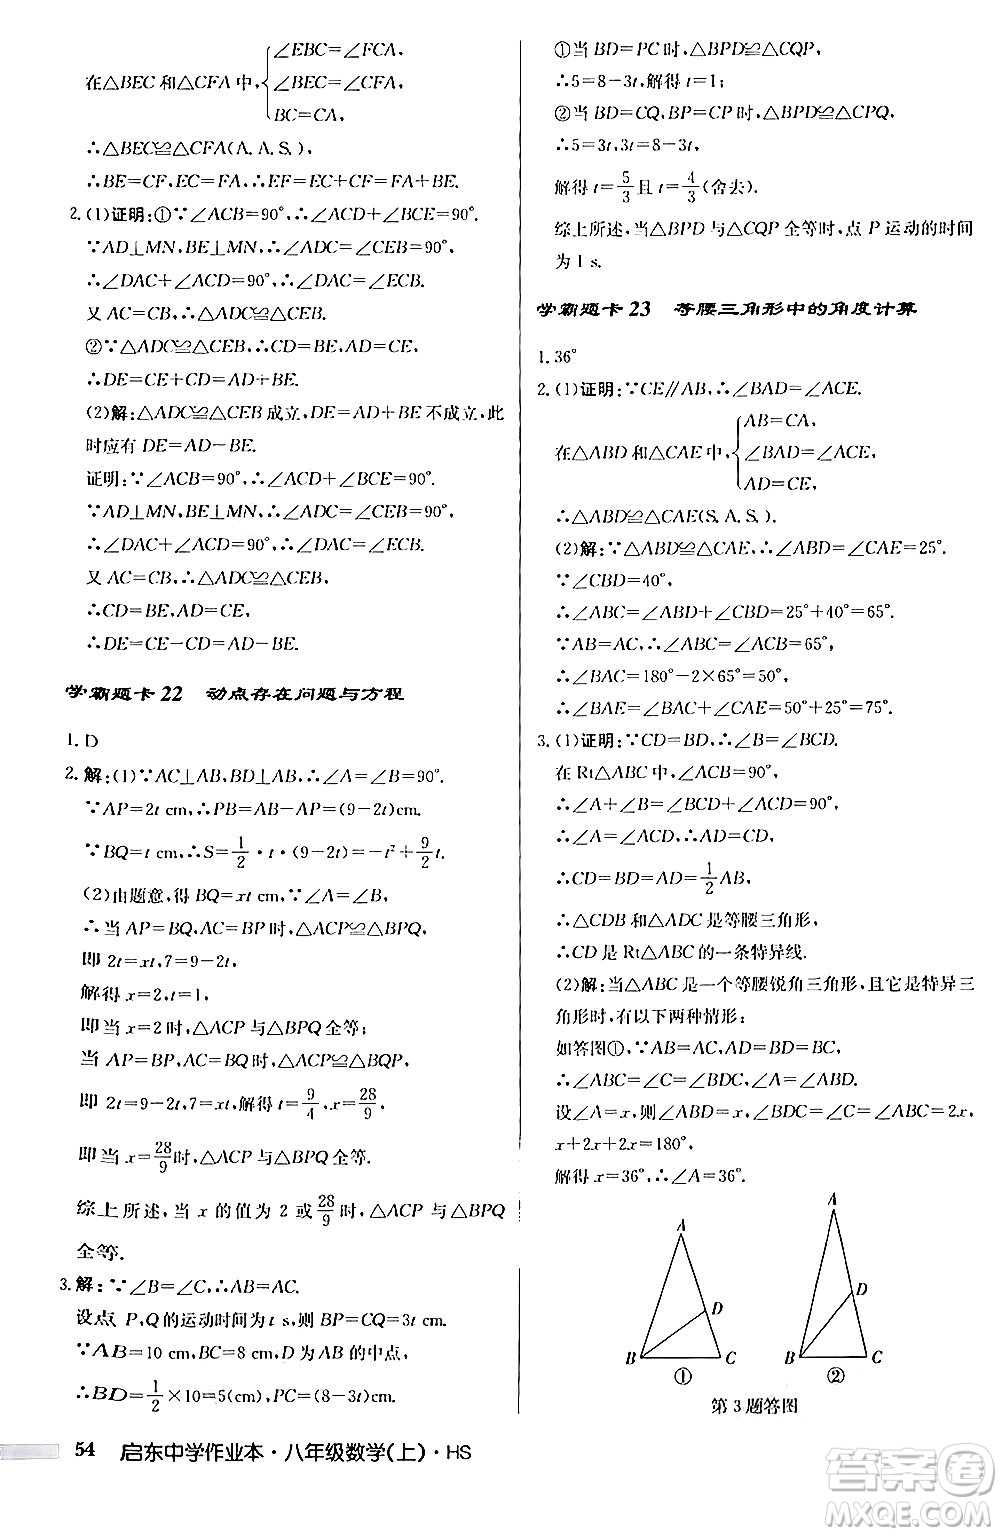 ∠EBC=∠FCA,
在△BEC和△CFA中,∠BEC=∠CFA,
BC=CA,
∴△BEC≌△CFA(A.A.S.).
∴BE=CF,EC=FA,∴EF=EC+CF=FA+BE.
2.(1)证明:①∵∠ACB=90°,∴∠ACD+∠BCE=90°.
∵AD⊥MN,BE⊥MN,∴∠ADC=∠CEB=90°,
∴∠DAC+∠ACD=90°,∴∠DAC=∠BCE.
又AC=CB,∴△ADC≌△CEB.
②∵△ADC≌△CEB,∴CE=AD,CD=BE.
∴DE=CE+CD=AD+BE.
(2)解:△ADC≌△CEB成立,DE=AD+BE不成立,此
时应有DE=AD-BE.
证明:∵∠ACB=90°,∴∠ACD+∠BCE=90°.
∵AD⊥MN,BE⊥MN,∴∠ADC=∠CEB=90°,
∴∠DAC+∠ACD=90°,∴∠DAC=∠BCE.
又AC=CB,∴△ADC≌△CEB.
∴CD=BE,AD=CE,
∴DE=CE-CD=AD-BE.
学霸题卡22 动点存在问题与方程
1.D
2.解:(1)∵AC⊥AB,BD⊥AB,∴∠A=∠B=90°.
∵AP=2t cm,∴PB=AB-AP=(9-2t)cm.
∵BQ=t cm,∴S=1/2·t·(9-2t)=-t²+9/2t.
(2)由题意,得BQ=xt,∵∠A=∠B,
∴当AP=BQ,AC=BP时,△ACP≌△BPQ,
即2t=xt,7=9-2t,
解得x=2,t=1,
即当x=2时,△ACP与△BPQ全等;
当AP=BP,AC=BQ时,△ACP≌△BQP,
即2t=9-2t,7=xt,解得t=9/4,x=28/9,
即当x=28/9时,△ACP与△BPQ全等.
综上所述,当x的值为2或28/9时,△ACP与△BPQ
全等.
3.解:∵∠B=∠C,∴AB=AC.
设点P,Q的运动时间为t s,则BP=CQ=3t cm.
∵AB=10 cm,BC=8 cm,D为AB的中点,
∴BD=1/2×10=5(cm),PC=(8-3t)cm.
①当BD=PC时,△BPD≌△CQP,
∴5=8-3t,解得t=1;
②当BD=CQ,BP=CP时,△BPD≌△CPQ,
∴5=3t,3t=8-3t,
解得t=5/3且t=4/3(舍去).
综上所述,当△BPD与△CQP全等时,点P运动的时间
为1 s.
学霸题卡23 等腰三角形中的角度计算
1.36°
2.(1)证明:∵CE∥AB,∴∠BAD=∠ACE.
AB=CA,
在△ABD和△CAE中,∠BAD=∠ACE,
AD=CE,
∴△ABD≌△CAE(S.A.S.).
(2)解:∵△ABD≌△CAE,∴∠ABD=∠CAE=25°.
∵∠CBD=40°,
∴∠ABC=∠ABD+∠CBD=25°+40°=65°.
∵AB=AC,∴∠ABC=∠ACB=65°,
∴∠BAC=180°-∠ABC-∠ACB=180°-2×65°=50°,
∴∠BAE=∠BAC+∠CAE=50°+25°=75°.
3.(1)证明:∵CD=BD,∴∠B=∠BCD.
在Rt△ABC中,∠ACB=90°,
∴∠A+∠B=∠BCD+∠ACD=90°,
∴∠A=∠ACD,∴AD=CD,
∴CD=BD=AD=1/2AB,
∴△CDB和△ADC是等腰三角形,
∴CD是Rt△ABC的一条特异线.
(2)解:当△ABC是一个等腰锐角三角形,且它是特异三
角形时,有以下两种情形:
如答图①,∵AB=AC,AD=BD=BC,
∴∠A=∠ABD,∠BDC=∠C.
设∠A=x,则∠ABD=x,∠BDC=∠C=∠ABC=2x,
x+2x+2x=180°,
解得x=36°,∴∠A=36°.
A
D
B
C
①
A
D
B
C
②
第3题答图
54 启东中学作业本·八年级数学(上)·HS
答案圈
MXQE.COM